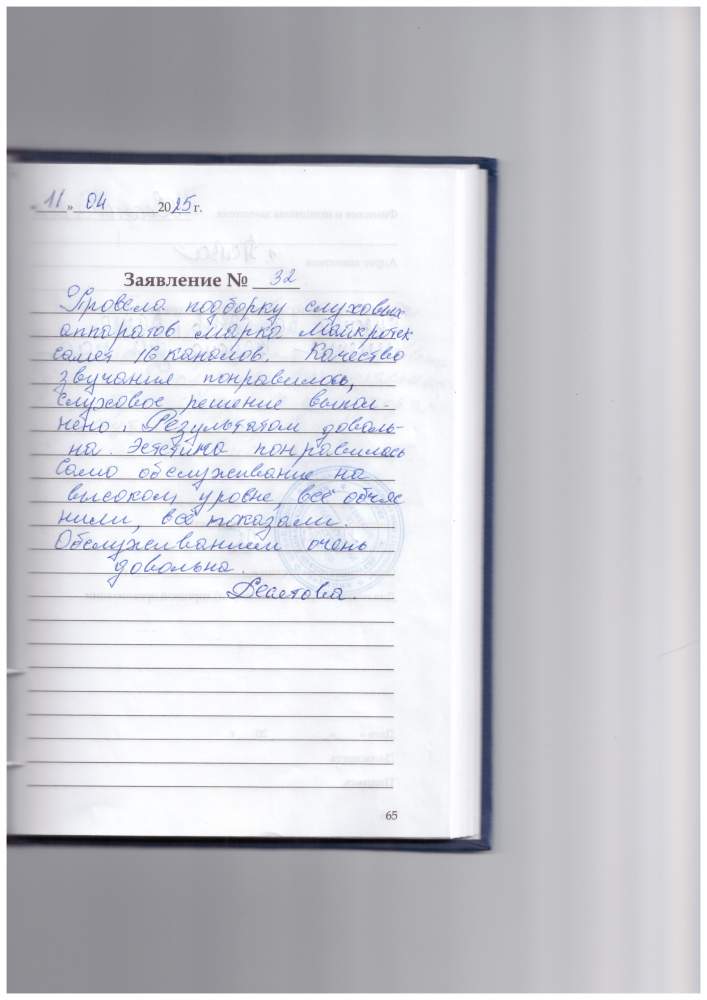 « 11 » 04 2025 г.
Заявление № 32
Провела подборку слуховых
аппаратов марка Майкротек
самет 16 каналов. Качество
звучания понравилось,
слуховое решение выпол-
нено. Результатом доволь-
на. Эстетика понравилась
Само обслуживание на
высоком уровне, всё объяс
нили, всё показали.
Обслуживанием очень
довольна.
65